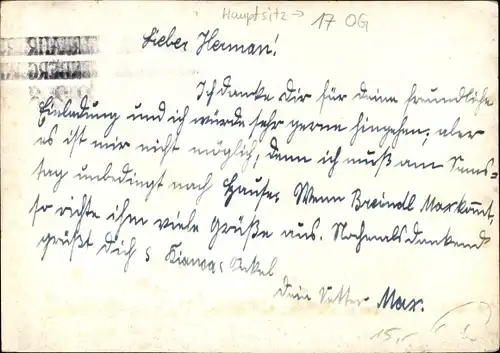 Hauptsitz → 17 OG
Lieber Herman!
Ich danke Dir für deine freundliche
Einladung und ich würde sehr gerne hingehen, aber
es ist mir nicht möglich, denn ich muß am Sams-
tag unbedingt nach Hause. Wenn Breindl Max kommt,
so richte ihm viele Grüße aus. Nochmals dankend
grüßt Dich
dein Vetter Max.
15,-